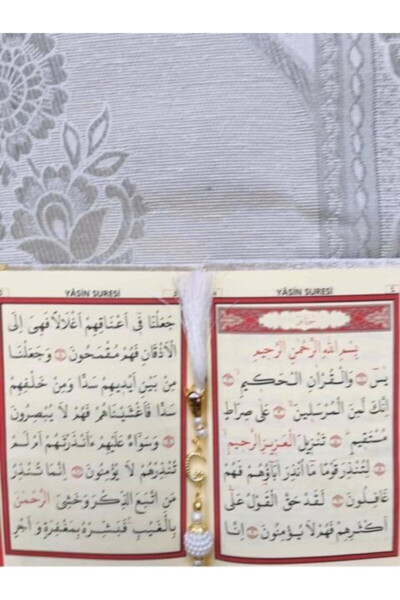 YÂSİN SURESİ
5
بِسْمِ اللهِ الرَّحْمٰنِ الرَّحِيمِ
يٰسٓ وَالْقُرْاٰنِ الْحَكِيمِ
اِنَّكَ لَمِنَ الْمُرْسَلِينَ عَلٰى صِرَاطٍ
مُسْتَقِيمٍ تَنْزِيلَ الْعَزِيزِ الرَّحِيمِ
لِتُنْذِرَ قَوْمًا مَٓا اُنْذِرَ اٰبَٓاؤُهُمْ فَهُمْ
غَافِلُونَ لَقَدْ حَقَّ الْقَوْلُ عَلٰٓى
اَكْثَرِهِمْ فَهُمْ لَا يُؤْمِنُونَ اِنَّا
YÂSİN SURESİ
جَعَلْنَا فِٓى اَعْنَاقِهِمْ اَغْلَالًا فَهِىَ اِلَى
الْاَذْقَانِ فَهُمْ مُقْمَحُونَ وَجَعَلْنَا
مِنْ بَيْنِ اَيْدِيهِمْ سَدًّا وَمِنْ خَلْفِهِمْ
سَدًّا فَاَغْشَيْنَاهُمْ فَهُمْ لَا يُبْصِرُونَ
وَسَوَٓاءٌ عَلَيْهِمْ ءَاَنْذَرْتَهُمْ اَمْ لَمْ
تُنْذِرْهُمْ لَا يُؤْمِنُونَ اِنَّمَا تُنْذِرُ
مَنِ اتَّبَعَ الذِّكْرَ وَخَشِىَ الرَّحْمٰنَ
بِالْغَيْبِ فَبَشِّرْهُ بِمَغْفِرَةٍ وَاَجْرٍ